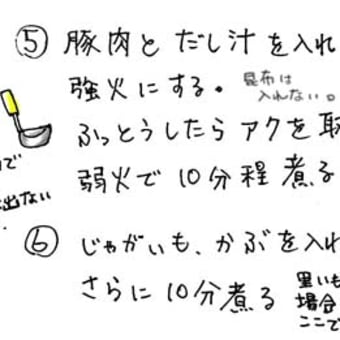 ⑤ 豚肉と だし汁 を入れ
強火にする。
昆布は
入れない。
ふっとうしたら アクを取
弱火で 10分程 煮る
で
出ない
⑥ じゃがいも、かぶを入れ
さらに 10分煮る
里いも
場合
ここで